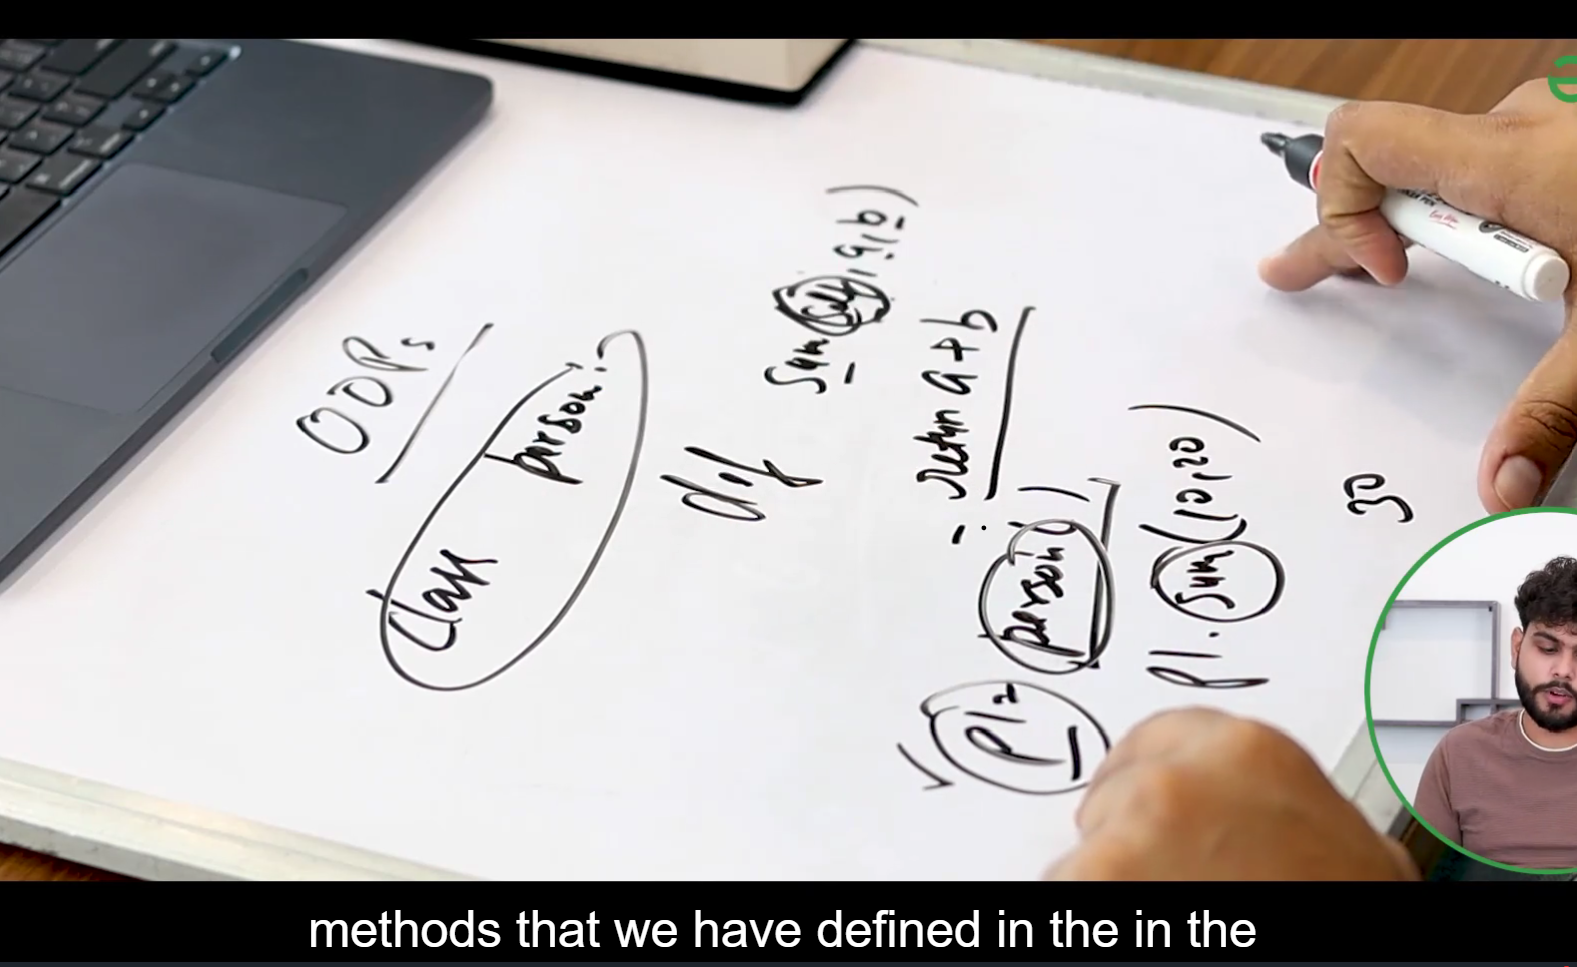 OOPs
class person:
def sum(self, a, b)
return a+b
P1= person()
P1.sum(10,20)
30
methods that we have defined in the in the